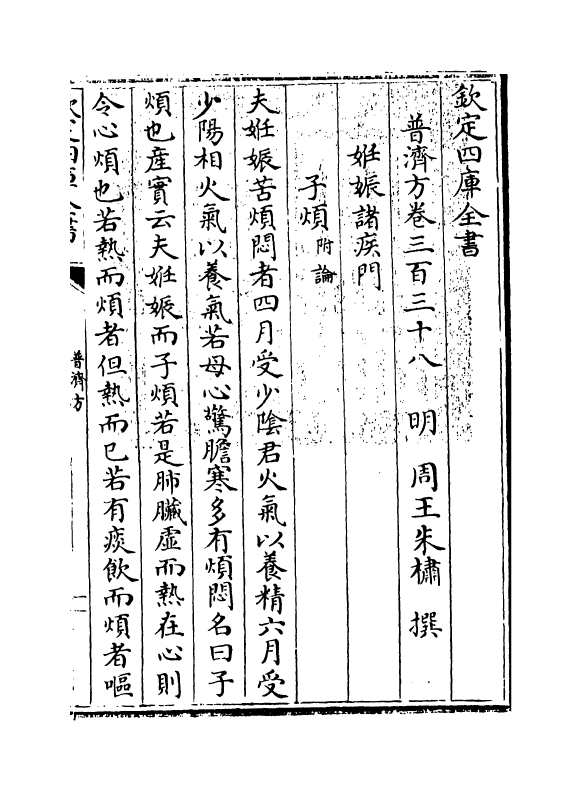 欽定四庫全書
普濟方卷三百三十八 明 周王朱橚 撰
妊娠諸疾門
子煩附論
夫妊娠苦煩悶者四月受少陰君火氣以養精六月受
少陽相火氣以養氣若母心驚膽寒多有煩悶名曰子
煩也產寳云夫妊娠而子煩若是肺臟虛而熱在心則
令心煩也若熱而煩者但熱而已若有痰飲而煩者嘔
普濟方